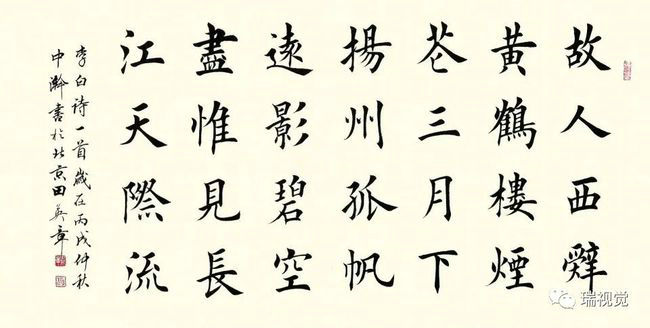 故人西辤
黄鶴樓煙
花三月下
揚州孤帆
遠影碧空
盡惟見長
江天際流
李白诗一首歲在丙戌仲秋
中澣書於北京田英章
瑞视觉